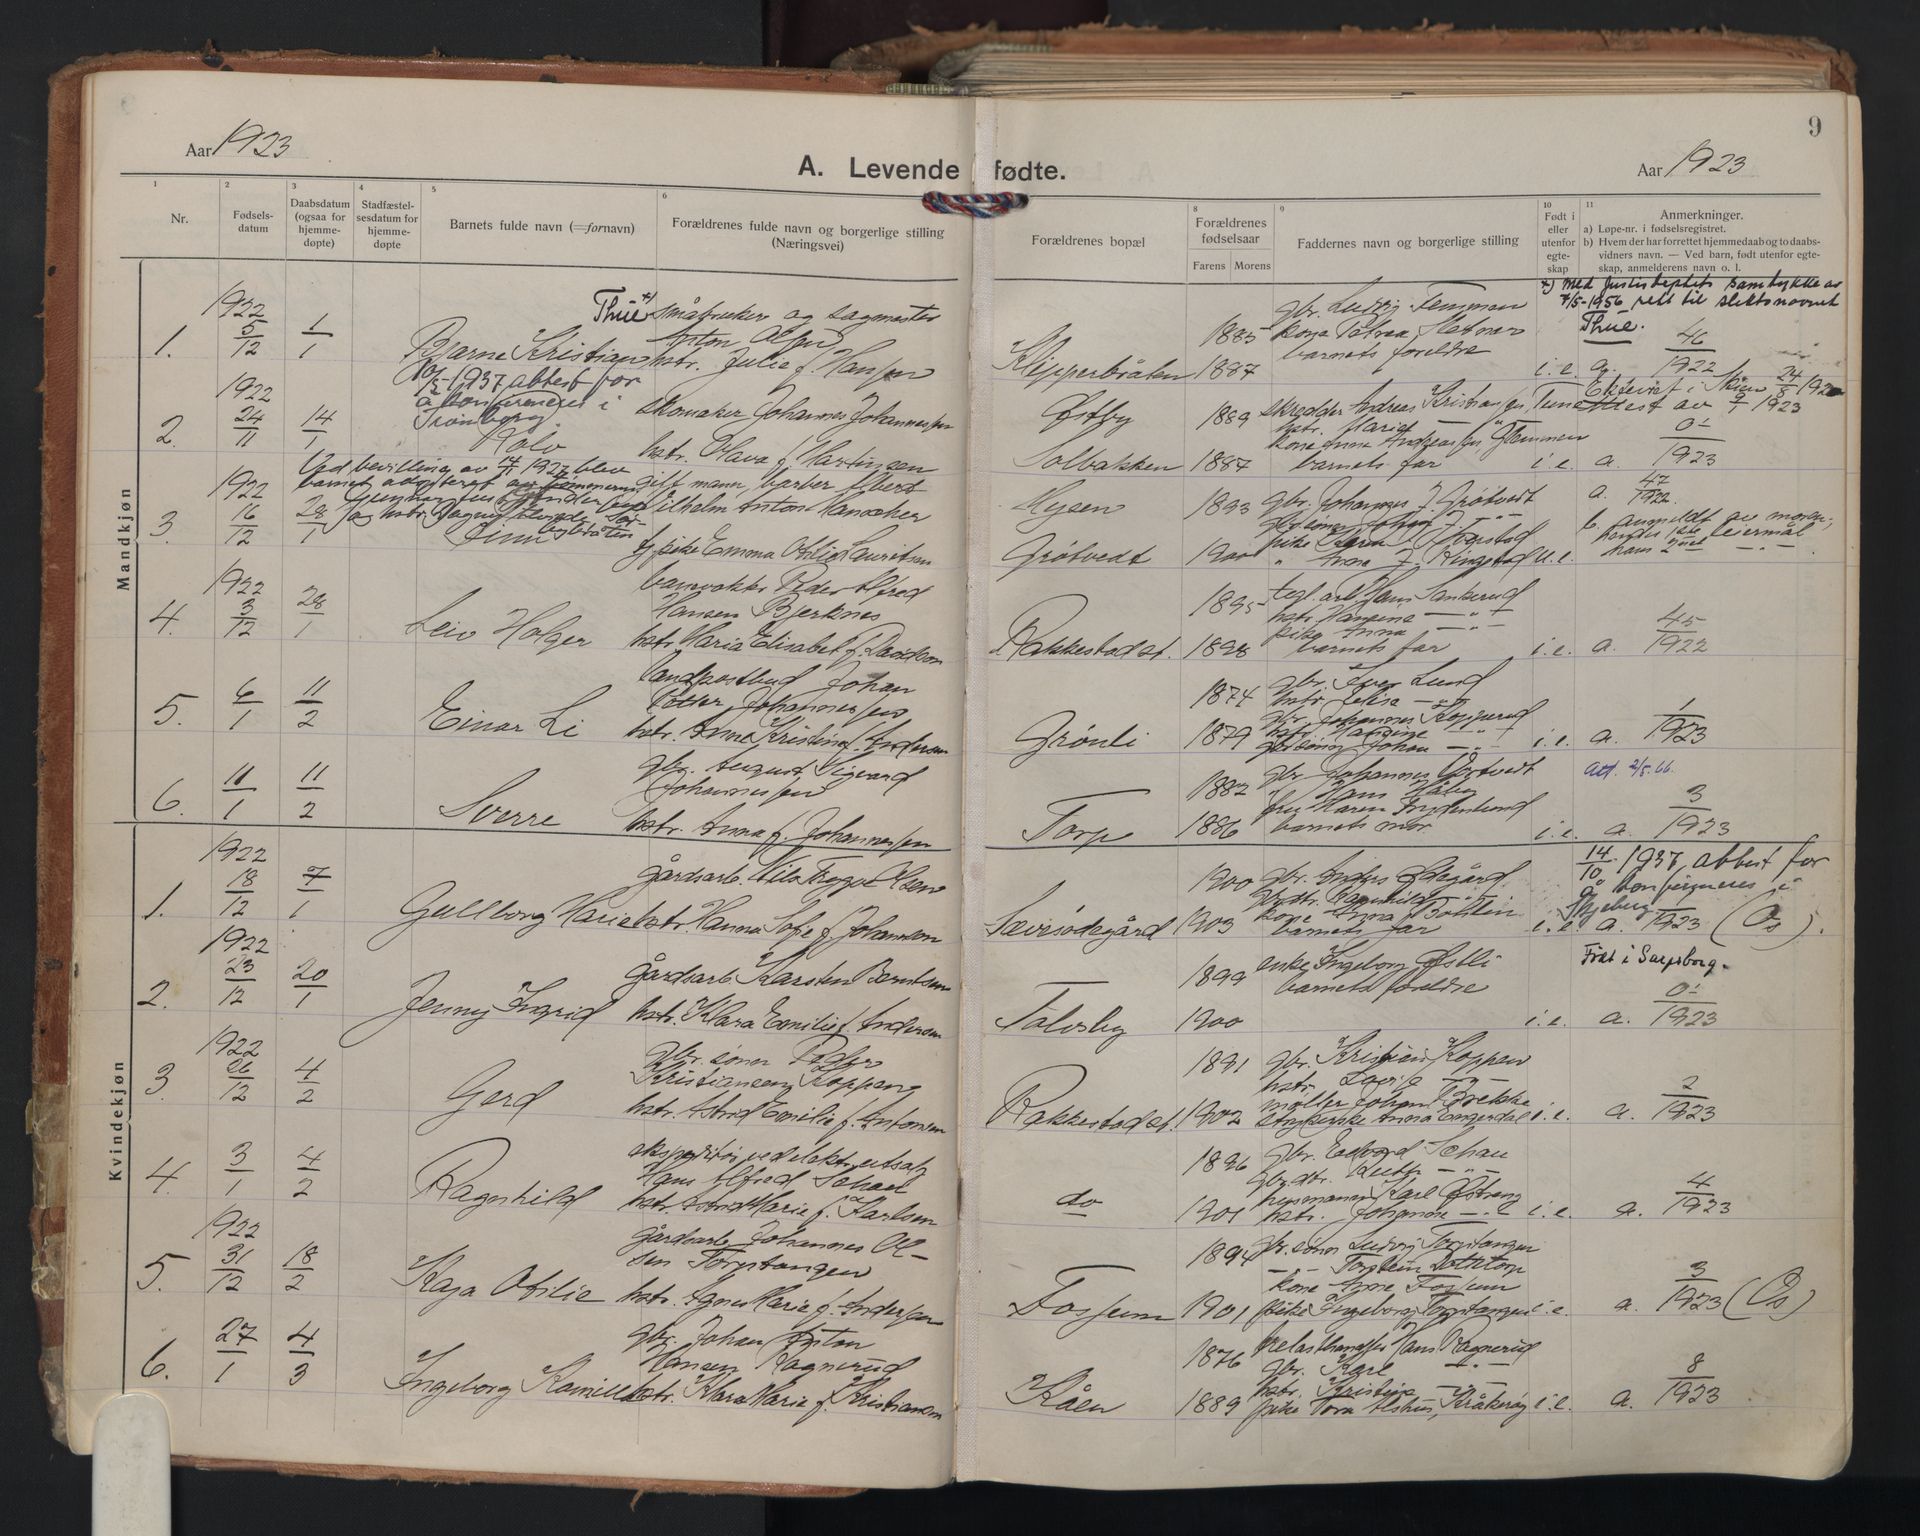 9
Aar 1923
A. Levende fødte.
Aar 1923
1
2
3
4
5
6
8
9
10
11
Nr.
Fødsels-
datum
Daabsdatum
(ogsaa for
hjemme-
døpte)
Stadfæstel-
sesdatum for
hjemme-
døpte
Barnets fulde navn (=fornavn)
Forældrenes fulde navn og borgerlige stilling
(Næringsvei)
Forældrenes bopæl
Forældrenes
fødselsaar
Farens Morens
Faddernes navn og borgerlige stilling
Født i
eller
utenfor
egte-
skap
Anmerkninger.
a) Løpe-nr. i fødselsregistret.
b) Hvem der har forrettet hjemmedaab og to daabs-
vidners navn. — Ved barn, født utenfor egte-
skap, anmelderens navn o. l.
Mandkjøn
x) Med Justisdeptets samtykke av
7/5-1956 rett til slektsnavnet
Thue.
1.
1922
5/12
1/1
Thue x)
Bjarne Kristian
småbruker og sagmester
Anton Olsen
hstr. Julie f. Hansen
Klipperbråten
1885
1887
gbr. Ludvig Temman
kone
barnets foreldre
i.e.
a. 46/1922
2.
1922
24/11
14/1
1937, attest for
å konfirmeres i
Kolo
skomaker Johannes Johannessen
hstr. Olava f. Martinsen
Østby
Solbakken
1889
1887
skredder Andreas Kristiansen, Tune
hstr. Marie
kone Anna Andreassen, Glemmen
barnets far
i.e.
Attest av 3/1 1923
a. 01/1923
3.
1922
16/12
28/1
Ved bevilling av 1927 blev
barnet adoptert av
Finn
gift mann, barber Albert
Vilhelm Anton
pike Emma Otilie Lauritsen
Mysen
Grøtvedt
1893
1900
gbr. Johannes J. Grøtvedt
gbrsønn Johan J. —"—
pike
" Anna J. Ringstad
u.e.
a. 47/1922
b. anmeldt av moren;
hendes 1ste leiermål
hans 2det —"—
4.
1922
3/12
28/1
Leiv Holger
banevokter Peder Alfred
Hansen Bjerknes
hstr. Maria Elisabet f. Davidsen
Rakkestad st.
1895
1898
tegl.arb. Hans Sankerud
hstr. Hansine —"—
pike Anna —"—
barnets far
i.e.
a. 45/1922
5.
6/1
11/2
Einar Li
landpostbud Johan
Johannessen
hstr. Anna Kristine f. Andersen
Grønli
1874
1879
gbr. Iver Lund
hstr. Elise —"—
gbr. Johannes Kopperud
hstr. Hansine —"—
gbrsønn Johan —"—
i.e.
a. 1/1923
6.
11/1
11/2
Sverre
gbr. August Sigvard
Johannessen
hstr. Anna f. Johannessen
Torp
1882
1886
gbr. Johannes Grøtvedt
" Hans Håby
fru Maren Frydenlund
barnets mor.
i.e.
Att. 2/5.66.
a. 3/1923
Kvindekjøn
1.
1922
18/12
7/1
Gullborg Marie
gårdsarb. Nils Trygve Olsen
hstr. Hanna Sofie f. Johannson
Sævisødegård
1900
1903
gbr. Anders Ødegård
gbrdtr. Ragnhild —"—
kone Anna
barnets far
i.e.
14/10 1937, attest for
å konfirmeres i
Skjeberg
a. 1/1923 (Os).
2.
1922
23/12
20/1
Jenny Ingrid
gårdsarb. Karsten Berntsen
hstr. Klara Emilie f. Andersen
Tolvsby
1899
1900
enke Ingeborg Østli
barnets foreldre
i.e.
Født i Sarpsborg.
a. 01/1923
3.
1922
26/12
4/2
Gerd
gbr. sønn Peder
Kristiansen Koppang
hstr. Astrid Emilie f. Antonsen
Rakkestad st.
1891
1902
gbr. Kristian Koppen
hstr. Lovise —"—
møller Johan Brekke
strykerske Anna Engerdal
i.e.
a. 2/1923
4.
3/1
4/2
Ragnhild
ekspeditør ved elektr. utsalg
Hans Alfred Schau
hstr. Astrid Marie f. Karlsen
do
1896
1901
gbr. Edvard Schau
gbr.dtr. Ruth —"—
husmann Karl Østreng
hstr. Johanne —"—
i.e.
a. 4/1923
5.
1922
31/12
18/2
Kaja Otilie
gårdsarb. Johannes Ol-
sen Torpstangen
hstr. Agnes Marie f. Andersen
Fossum
1894
1901
gbr.sønn Ludvig Torpstangen
—"— Torstein
kone Anne Fossum
pike Ingeborg Torpstangen
i.e.
a. 3/1923 (Os)
6.
27/1
4/3
Ingeborg Kamilla
gbr. Johan Anton
Hansen Ragnerud
hstr. Klara Marie f. Kristiansen
Kåen
1876
1889
trelasthandler Hans Ragnerud
gbr. Karl —"—
hstr. Kristine —"—
pike Tora Alshus, Kråkerøy
i.e.
a. 8/1923